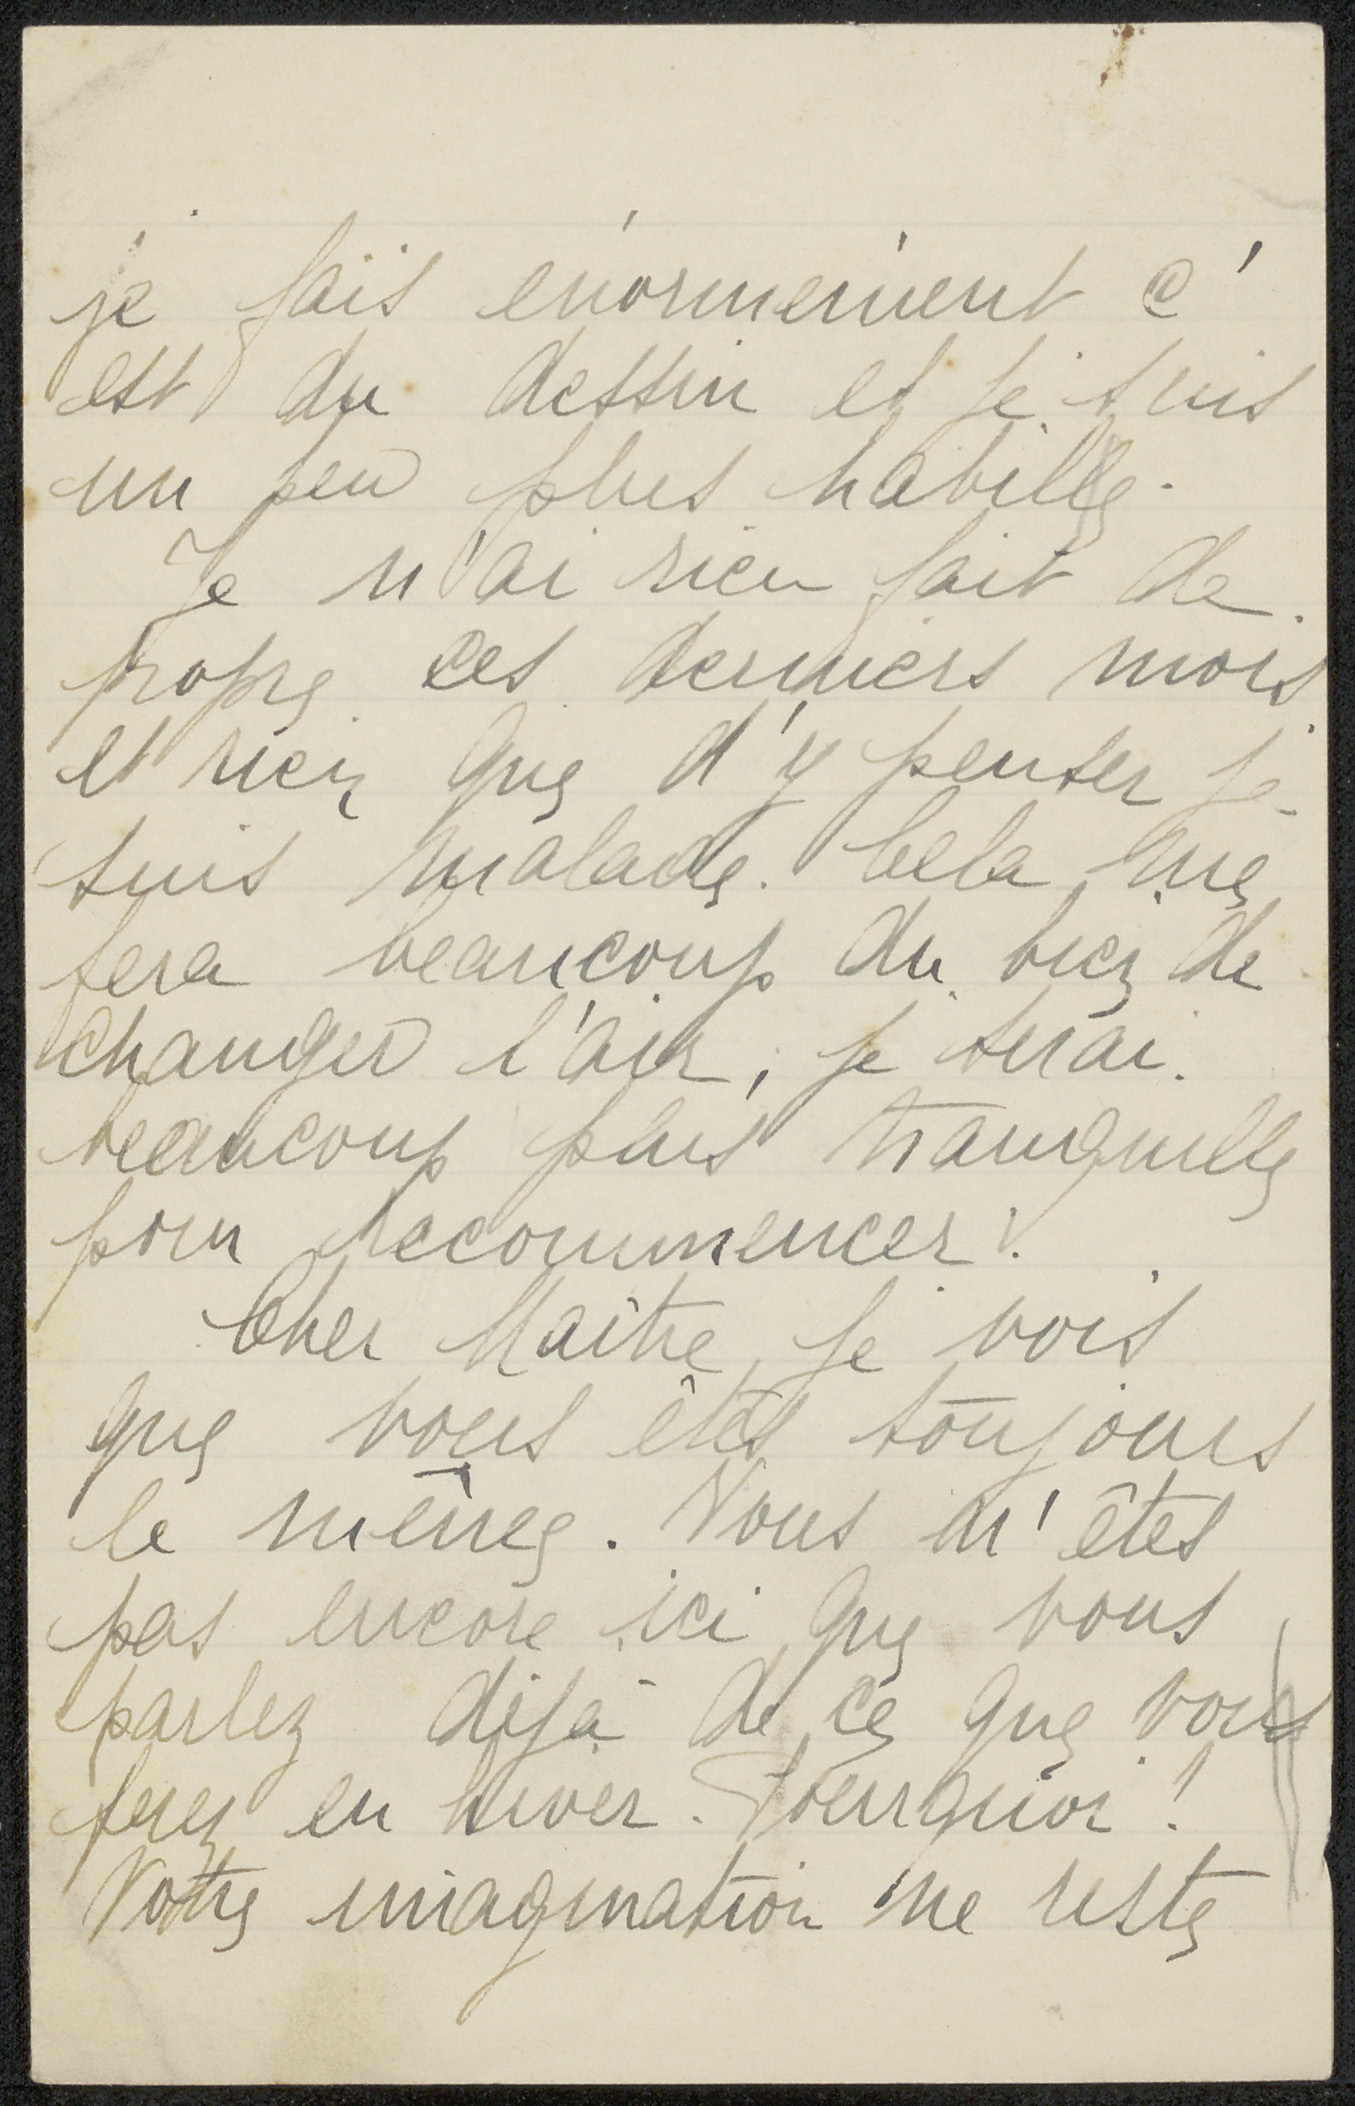 je fais enormement c'
est du dessin et je suis
un peu plus habille.
Je n'ai rien fait de
propre ces derniers mois
et rien que d'y penser je
suis malade. Cela me
fera beaucoup du bien de
changer l'air, je serai
beaucoup plus tranquille
pour recommencer.
Cher Maître, je vois
que vous êtes toujours
le même. Vous n'êtes
pas encore ici que vous
parlez déjà de ce que vous
ferez en hiver. Pourquoi!
Votre imagination ne reste